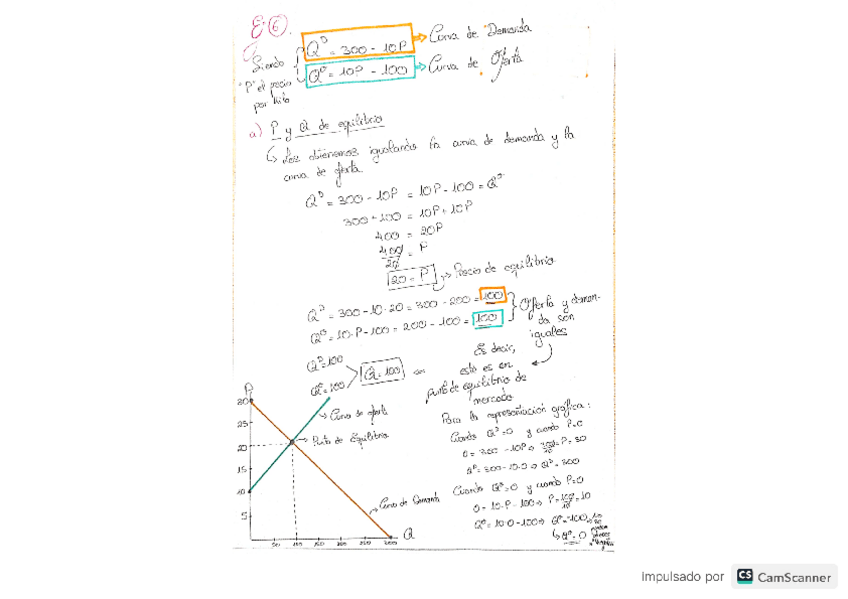 E⑥.
Siendo
"P" el precio
por kilo
Qᴰ = 300 - 10P → Curva de Demanda
Qᴼ = 10P - 100 → Curva de Oferta
a) P y Q de equilibrio
↳ Los obtenemos igualando la curva de demanda y la
curva de oferta
Qᴰ = 300 - 10P = 10P - 100 = Qᴼ
300 + 100 = 10P + 10P
400 = 20P
400/20 = P
20 = P → Precio de equilibrio
Qᴰ = 300 - 10·20 = 300 - 200 = 100
Qᴼ = 10·P - 100 = 200 - 100 = 100
Oferta y deman-
da son
iguales
Es decir,
esto es en
punto de equilibrio de
mercado
Qᴰ = 100
Qᴼ = 100
Q = 100
Para la representación gráfica:
Cuando Qᴰ = 0 y cuando P = 0
0 = 300 - 10P → 300/10 = P = 30
Qᴰ = 300 - 10·0 → Qᴰ = 300
Cuando Qᴼ = 0 y cuando P = 0
0 = 10·P - 100 → P = 100/10 = 10
Qᴼ = 10·0 - 100 → Qᴼ = -100
↳ Qᴼ = 0
P
30
25
20
15
10
5
50 100 150 200 250 300
Q
Curva de oferta
Punto de Equilibrio
Curva de Demanda
Impulsado por CS CamScanner